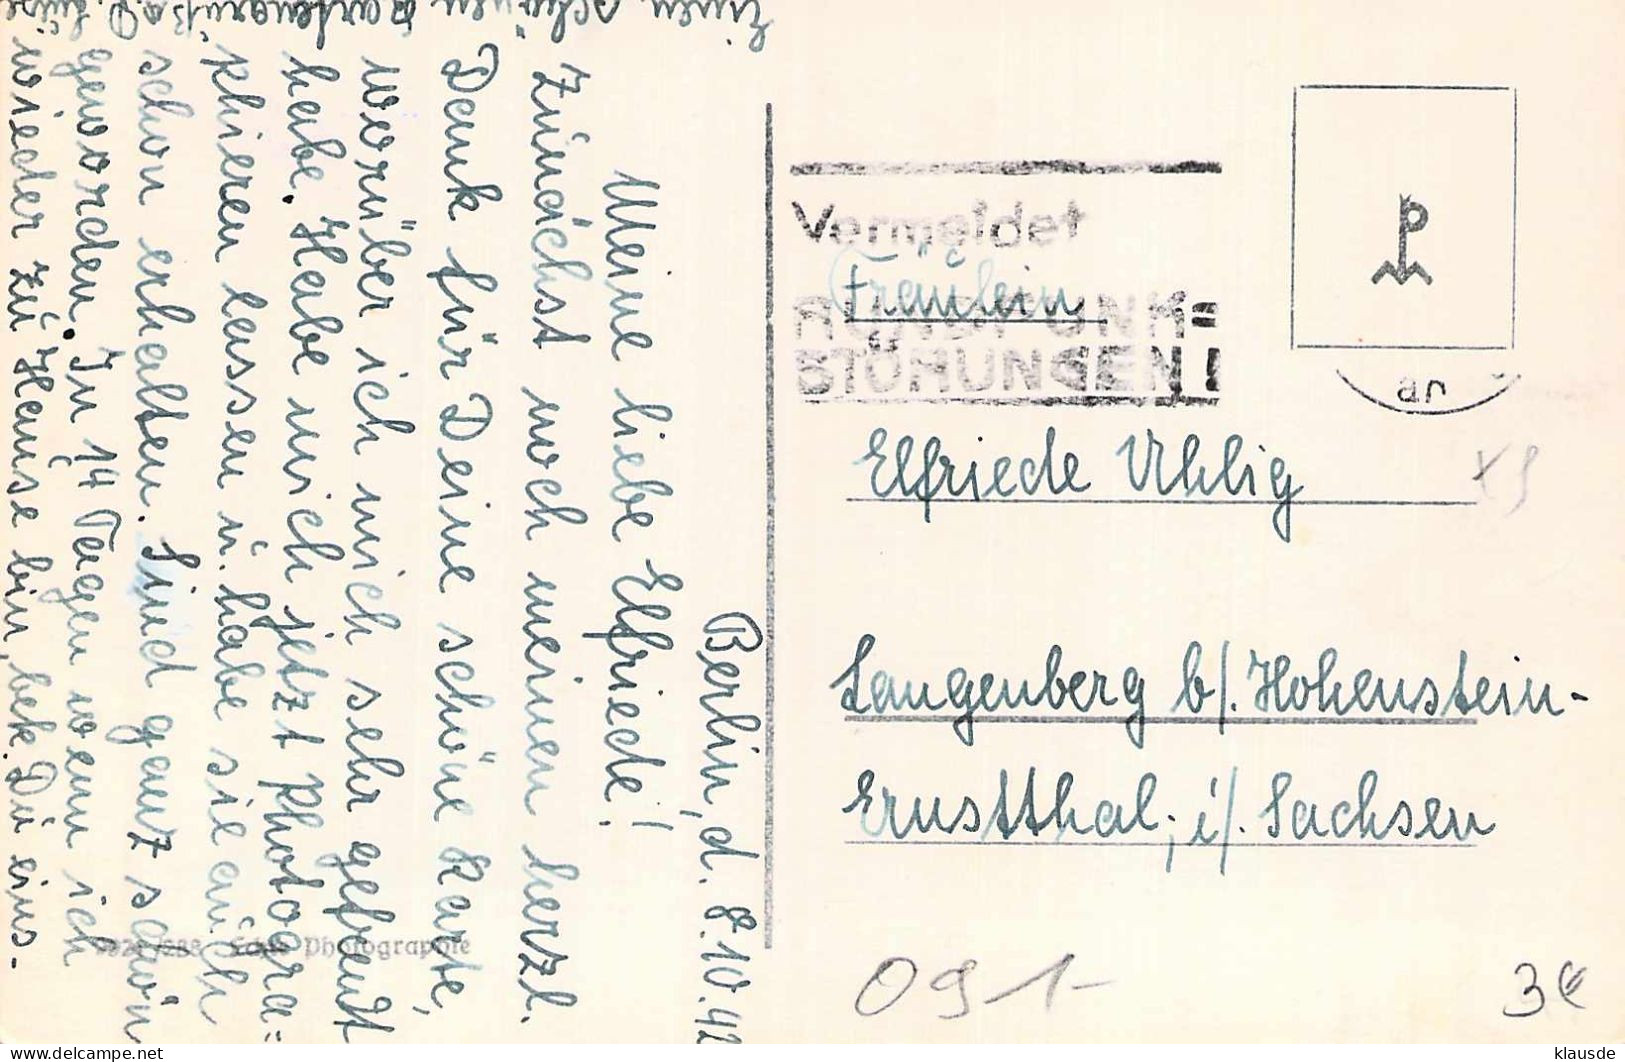 Berlin, d. 8.10.42
Meine liebe Elfriede!
Zunächst noch meinen herzl.
Dank für Deine schöne Karte,
worüber ich mich sehr gefreut
habe. Habe mich jetzt Photogra=
phieren lassen ü. habe sie auch
schon erhalten. Sind ganz schön
geworden. In 14 Tagen wenn ich
wieder zu Hause bin, bek. Du eins.
Einen schönen Kartengruß
Vermeldet
RUNDFUNK=
STÖRUNGEN!
Fräulein
Elfriede Uhlig
Langenberg b/. Hohenstein-
Ernstthal, i/. Sachsen
P
ar
Photographie
091-
3€
klausde